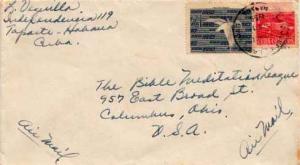 Independencia 119
Tapaste - Habana
Cuba.
The Bible Meditation League
957 East Broad St.
Columbus, Ohio.
U.S.A.
Air Mail
Air Mail